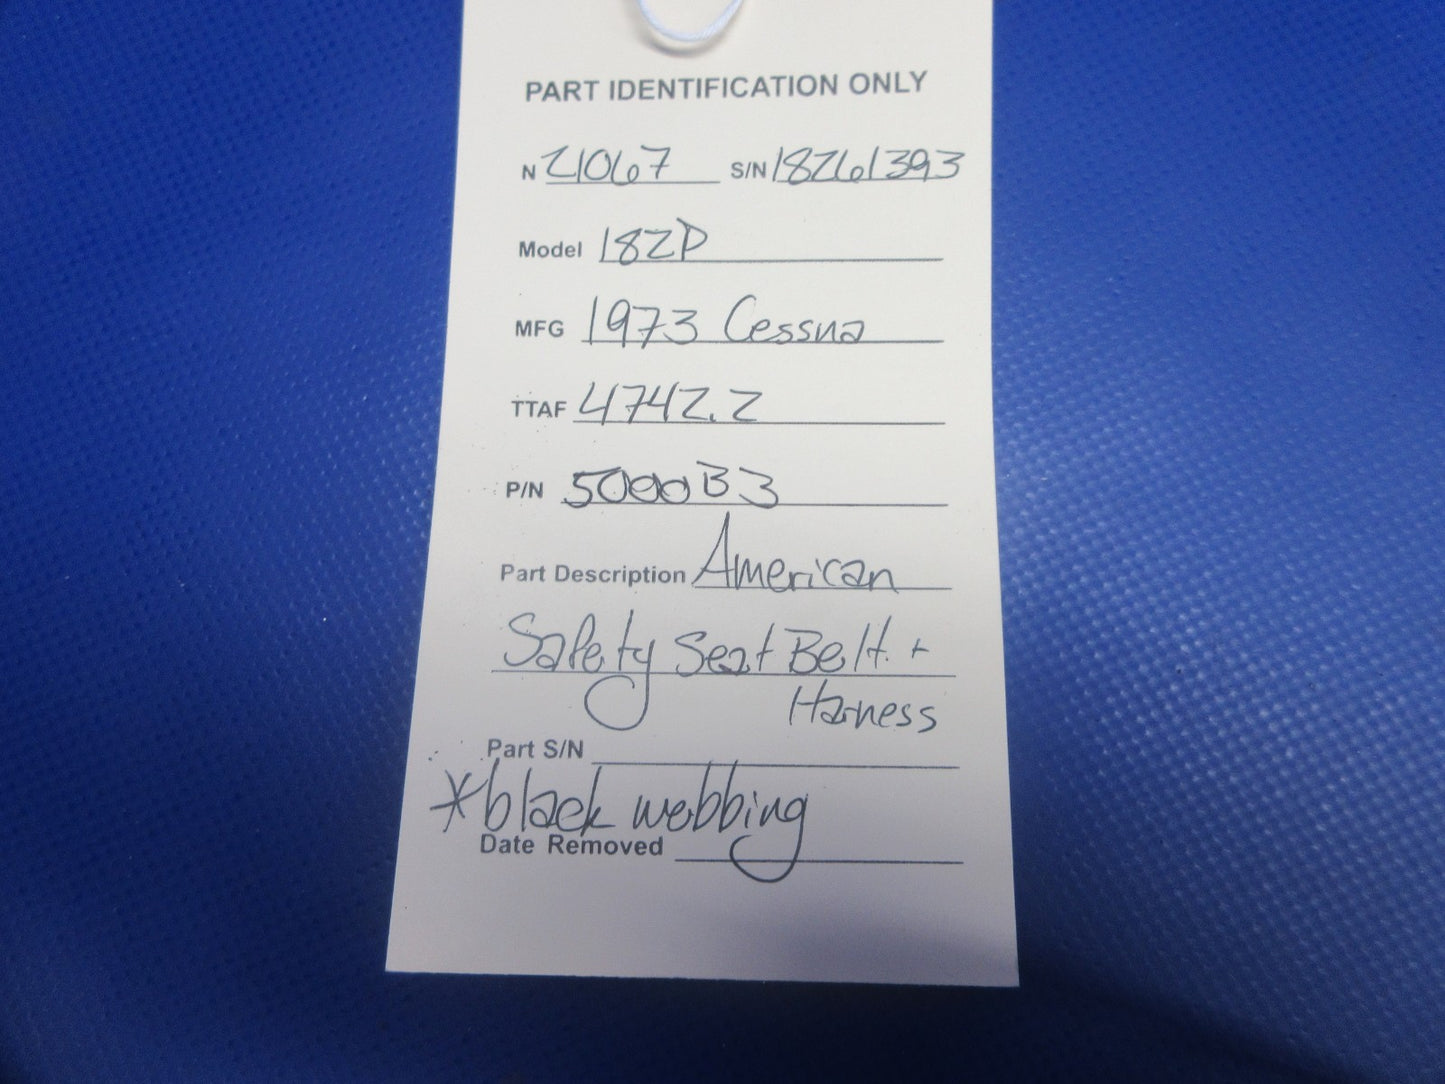 PART IDENTIFICATION ONLY
N 21067 S/N 18261393
Model 182P
MFG 1973 Cessna
TTAF 4742.2
P/N 5000B3
Part Description American
Safety Seat Belt +
Harness
Part S/N
*black webbing
Date Removed